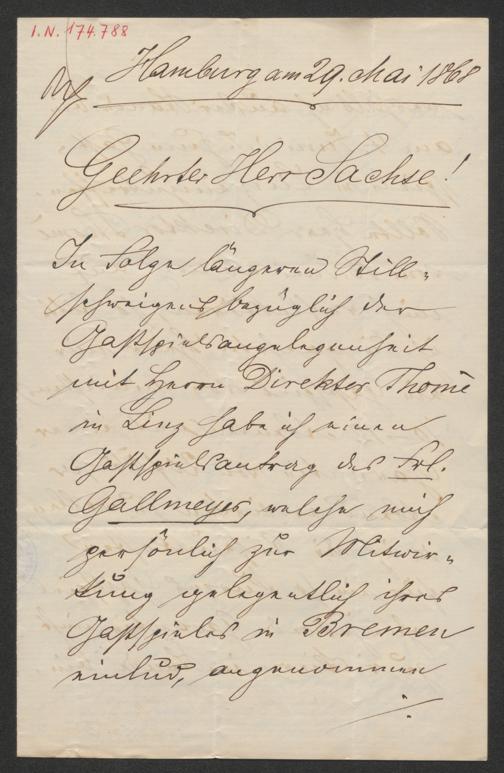 I.N. 174.788
Hamburg am 29. Mai 1868
Geehrter Herr Sachse!
In Folge längeren Still-
schweigens bezüglich der
Gastspielsangelegenheit
mit Herrn Direktor Thomé
in Linz habe ich einen
Gastspielsantrag des Frl.
Gallmeyer, welche mich
persönlich zur Mitwir-
kung gelegentlich ihres
Gastspieles in Bremen
einlud, angenommen